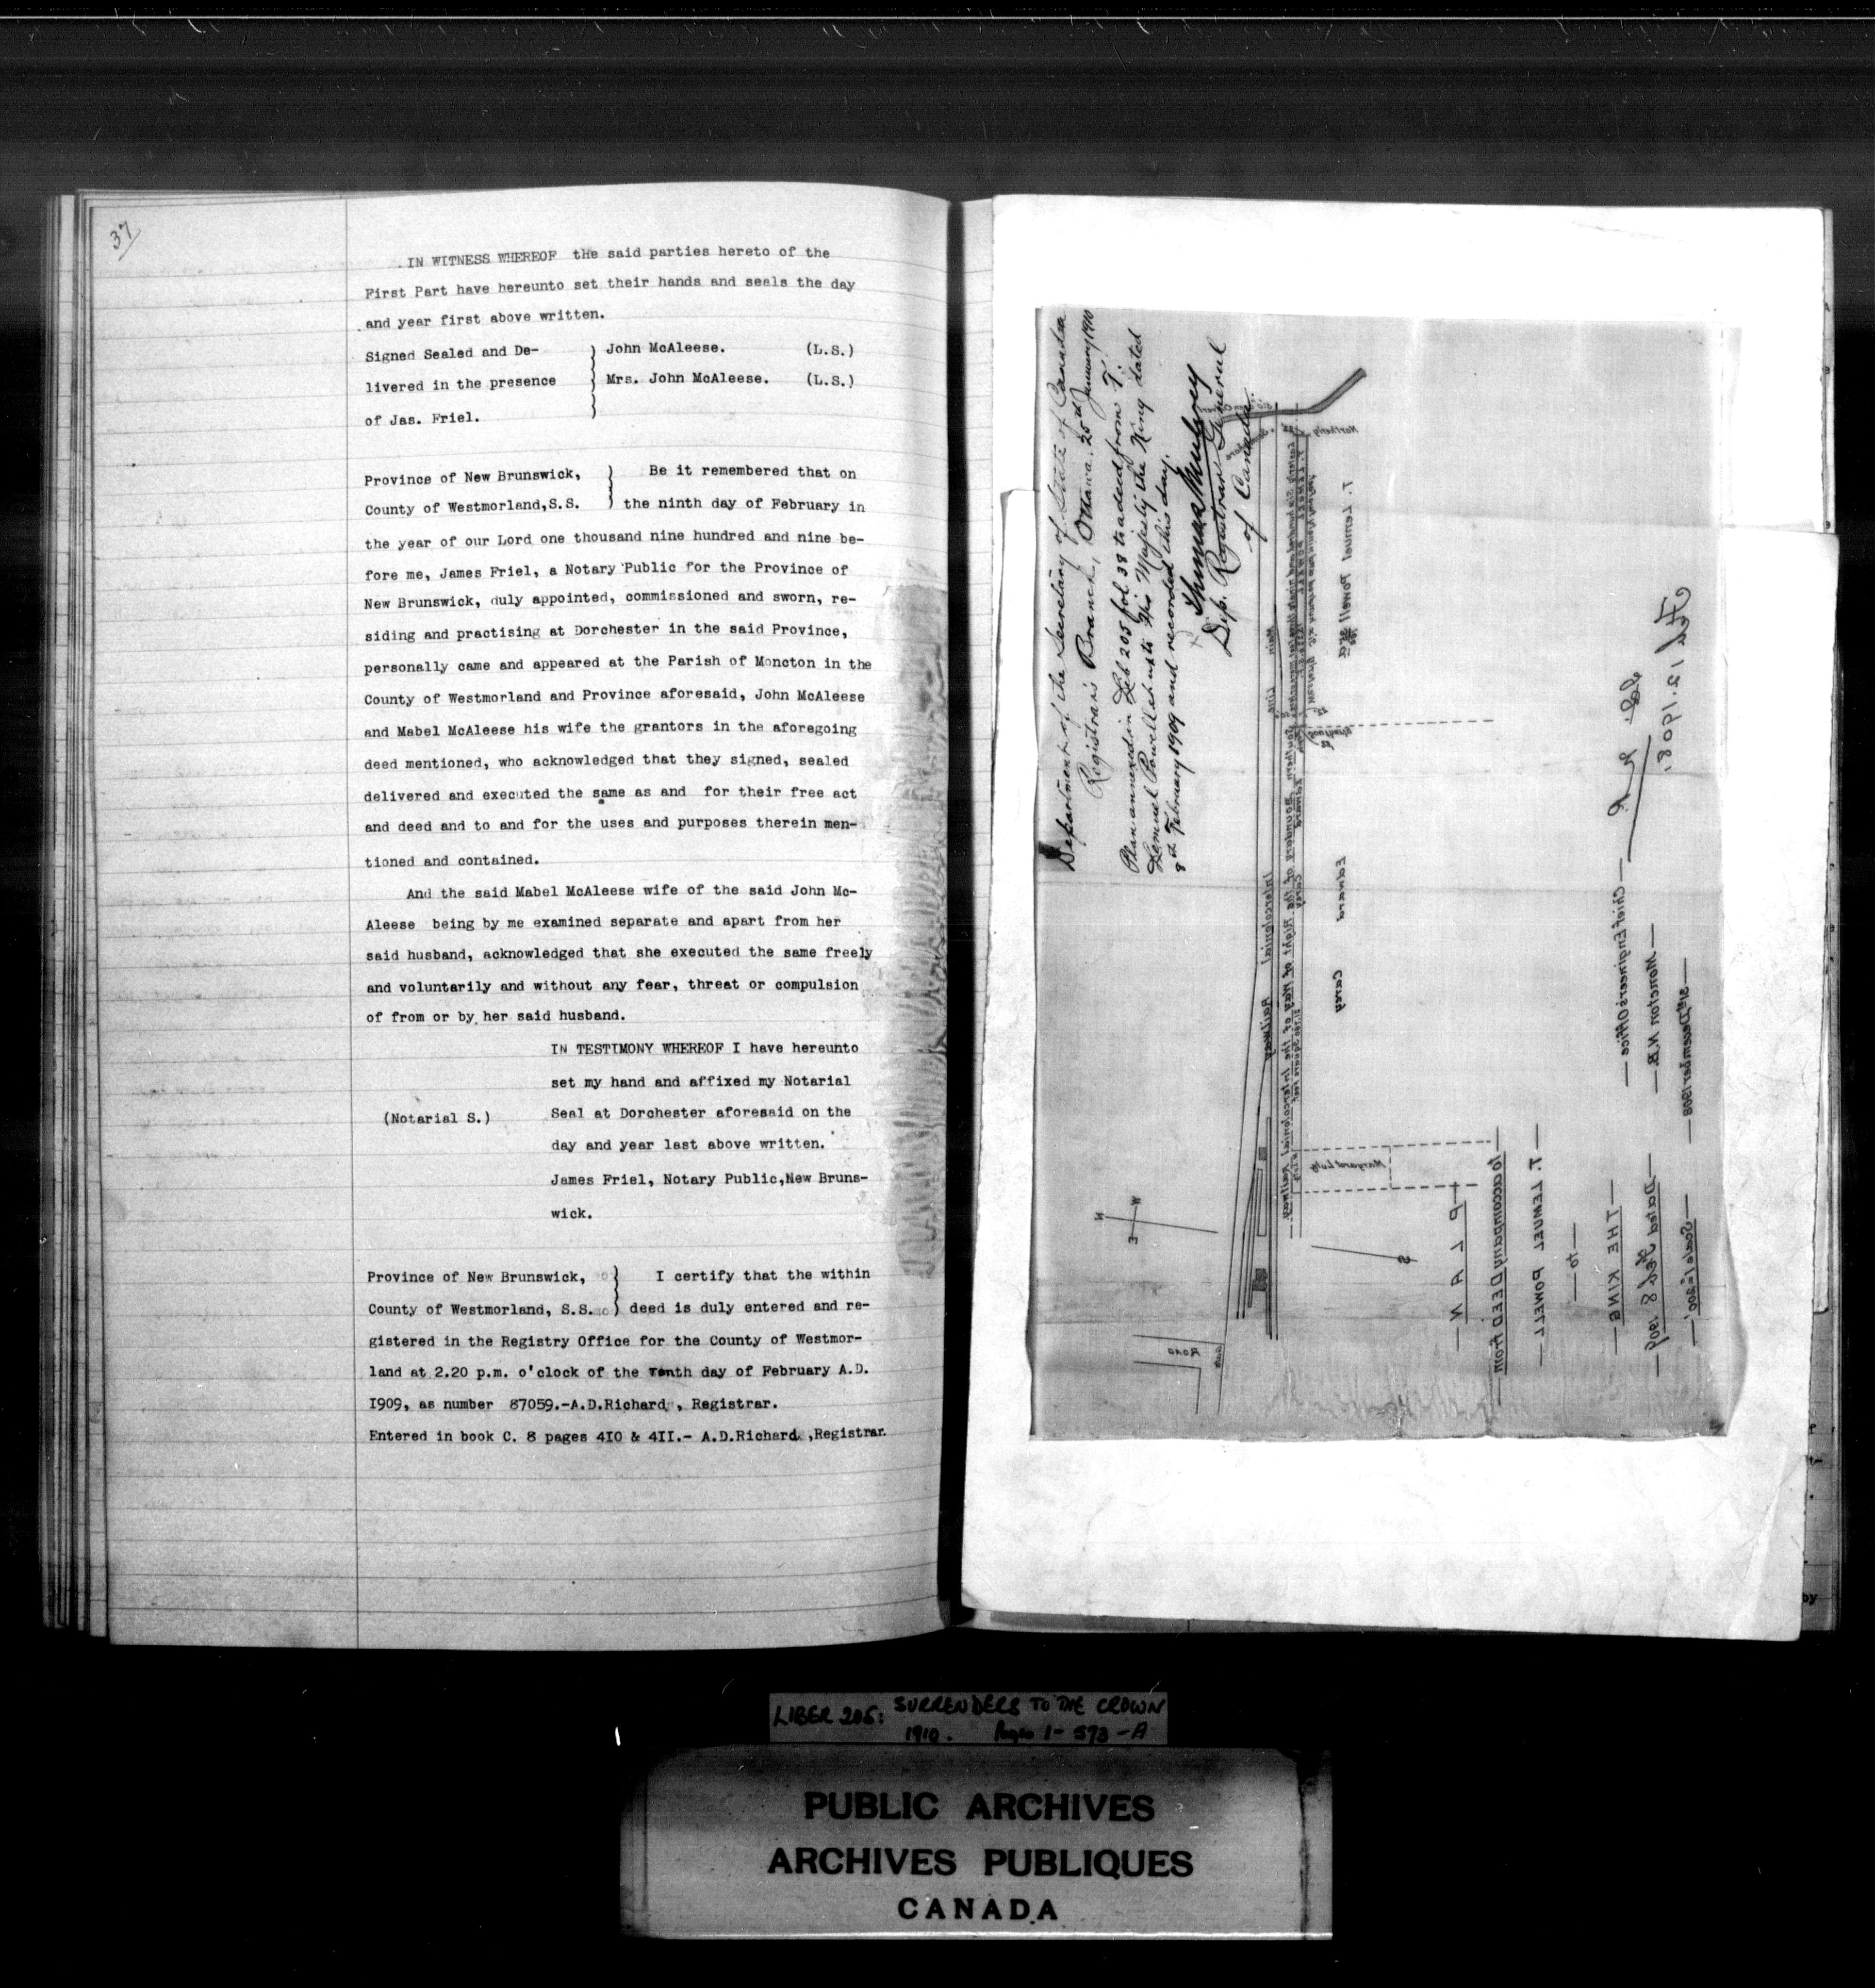 37
IN WITNESS WHEREOF the said parties hereto of the
First Part have hereunto set their hands and seals the day
and year first above written.
Signed Sealed and De- ) John McAleese. (L.S.)
livered in the presence ) Mrs. John McAleese. (L.S.)
of Jas. Friel. )
Province of New Brunswick, ) Be it remembered that on
County of Westmorland,S.S. ) the ninth day of February in
the year of our Lord one thousand nine hundred and nine be-
fore me, James Friel, a Notary Public for the Province of
New Brunswick, duly appointed, commissioned and sworn, re-
siding and practising at Dorchester in the said Province,
personally came and appeared at the Parish of Moncton in the
County of Westmorland and Province aforesaid, John McAleese
and Mabel McAleese his wife the grantors in the aforegoing
deed mentioned, who acknowledged that they signed, sealed
delivered and executed the same as and for their free act
and deed and to and for the uses and purposes therein men-
tioned and contained.
And the said Mabel McAleese wife of the said John Mc-
Aleese being by me examined separate and apart from her
said husband, acknowledged that she executed the same freely
and voluntarily and without any fear, threat or compulsion
of from or by her said husband.
IN TESTIMONY WHEREOF I have hereunto
set my hand and affixed my Notarial
(Notarial S.) Seal at Dorchester aforesaid on the
day and year last above written.
James Friel, Notary Public,New Bruns-
wick.
Province of New Brunswick, ) I certify that the within
County of Westmorland, S.S. ) deed is duly entered and re-
gistered in the Registry Office for the County of Westmor-
land at 2.20 p.m. o'clock of the Tenth day of February A.D.
I909, as number 87059.-A.D.Richard , Registrar.
Entered in book C. 8 pages 4I0 & 4II.- A.D.Richard ,Registrar.
Department of the Secretary of State of Canada
Registrar's Branch, Ottawa, 25th January 1910
Plan annexed in Lib 205 fol 38 to a deed from T.
Lemuel Powell et ux to His Majesty the King dated
8th February 1909 and recorded this day.
Thomas Mulvey
Dep. Registrar General
of Canada
Northerly
T. Lemuel Powell
Main Line
Intercolonial Railway
Southern Boundary of the Right of Way of the Intercolonial Railway
Edward Carey
Margaret Lutz
N
W
E
S
Road
—PLAN—
—to accompany DEED from—
—T. LEMUEL POWELL—
—to—
—THE KING—
—Dated Feb 8 1909—
—Scale 1"=200'—
—Chief Engineer's Office—
—Moncton N.B.—
—31st December 1908—
Feb 12. 1908.
LIBER 205: SURRENDERS TO THE CROWN
1910. Pages 1-573-A
PUBLIC ARCHIVES
ARCHIVES PUBLIQUES
CANADA